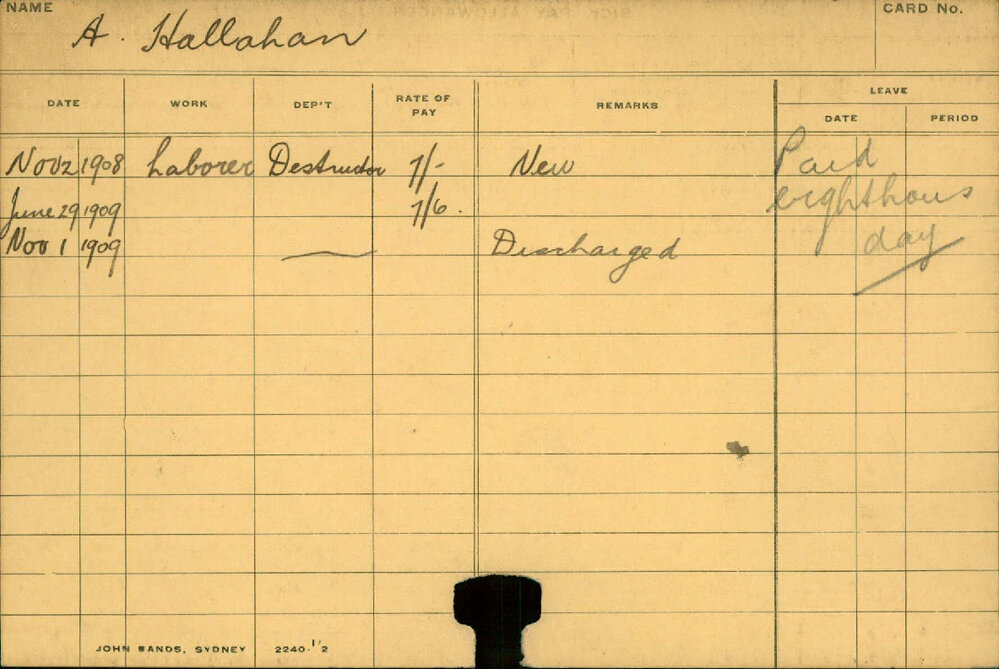 NAME
A. Hallahan
CARD No.
DATE WORK DEP'T RATE OF PAY REMARKS LEAVE
DATE PERIOD
Nov 2 1908 Laborer Destructor 7/- New Paid
June 29 1909 7/6. eighthours
Nov 1 1909 — Discharged day
JOHN SANDS, SYDNEY 2240-1'2